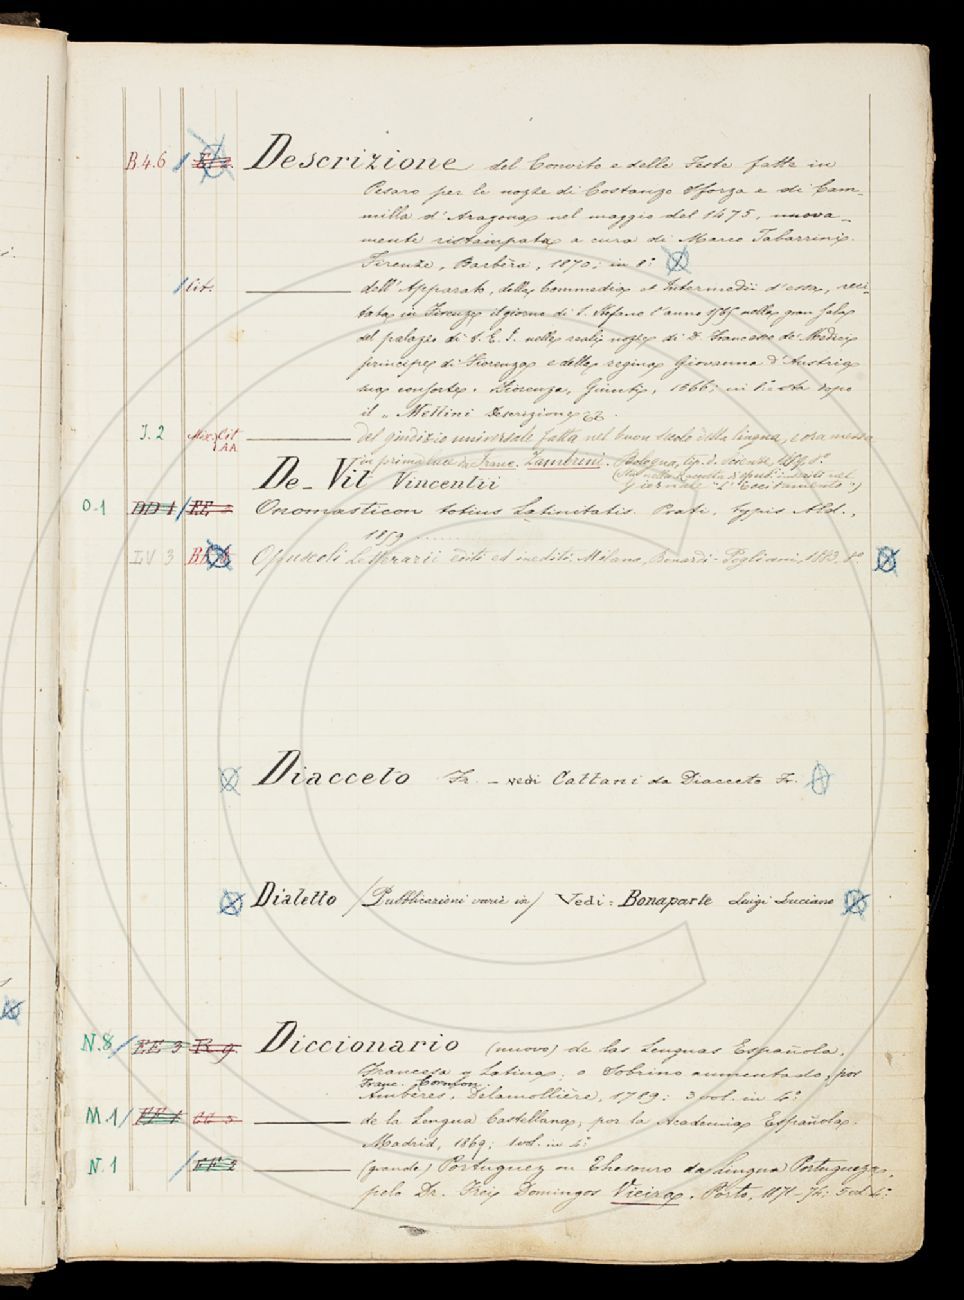 B.4.6 / E. 2. Descrizione del Convito e delle Feste fatte in
Pesaro per le nozze di Costanzo Sforza e di Cam-
milla d'Aragona nel maggio del 1475, nuova-
mente ristampata a cura di Marco Tabarrini.
Firenze, Barbèra, 1870; in 8°
/ Cit. ——— dell'Apparato, della Commedia et Intermedii d'essa, reci-
tata in Firenze il giorno di S. Stefano l'anno 1565 nella gran sala
del palazzo di S. E. I. nelle reali nozze di D. Francesco de' Medici
principe di Fiorenza e della regina Giovanna d'Austria
sua consorte. Fiorenza, Giunti, 1566; in 8° sta dopo
il „ Mellini Descrizione
J. 2 Misc. Cit 1.AA ——— del giudizio universale fatta nel buon secolo della lingua, e ora messa
in prima luce da Franc. Zambrini. Bologna, tip. d. scienze, 1859, 8°
(Sta nella Raccolta d'opusc. inseriti nel
Giornale "L'Eccitamento".)
De-Vit Vincentii
O.1 DD 1 / EE 3 Onomasticon totius Latinitatis. Prati, typis Ald.,
1859 ..........
LV 3 Opuscoli Letterarii editi ed inediti. Milano, Bonardi-Pogliani, 1883, 8°.
Diacceto Fr. – vedi Cattani da Diacceto Fr.
Dialetto (Pubblicazioni varie in) Vedi: Bonaparte Luigi Luciano
N.8 / EE 3 R 9. Diccionario (nuovo) de las Lenguas Española,
Francesa y Latina; o Sobrino aumentado, por
Franc. Cormon.
Ambères, Delamollière, 1789: 3 vol. in 4°
M.1 / CC 3 ——— de la Lengua Castellana, por la Academia Española.
Madrid, 1869; 1 vol. in 4°
N.1 / EE 2 ——— (grande) Portuguez ou Thesouro da Lingua Portugueza,
pelo Dr. Frei Domingos Vieira. Porto, 1871-74: 5 vol. 4°